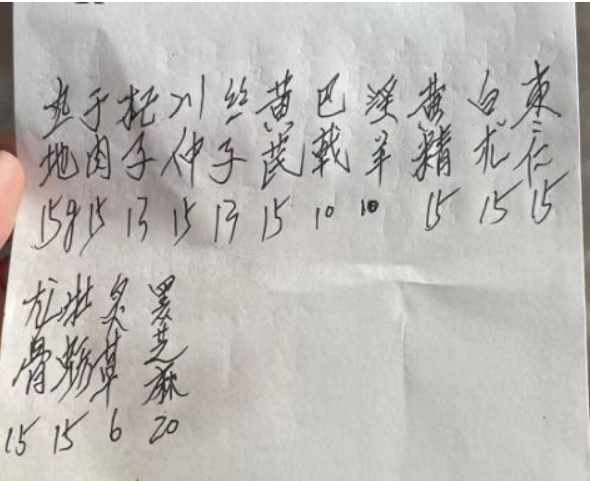 熟 于 杞 川 丝 黄 巴 淫 黄 白 枣
地 肉 子 仲 子 芪 戟 羊 精 术 仁
15g 15 13 15 13 15 10 10 15 15 15
龙 牡 炙 黑
骨 蛎 草 芝
麻
15 15 6 20